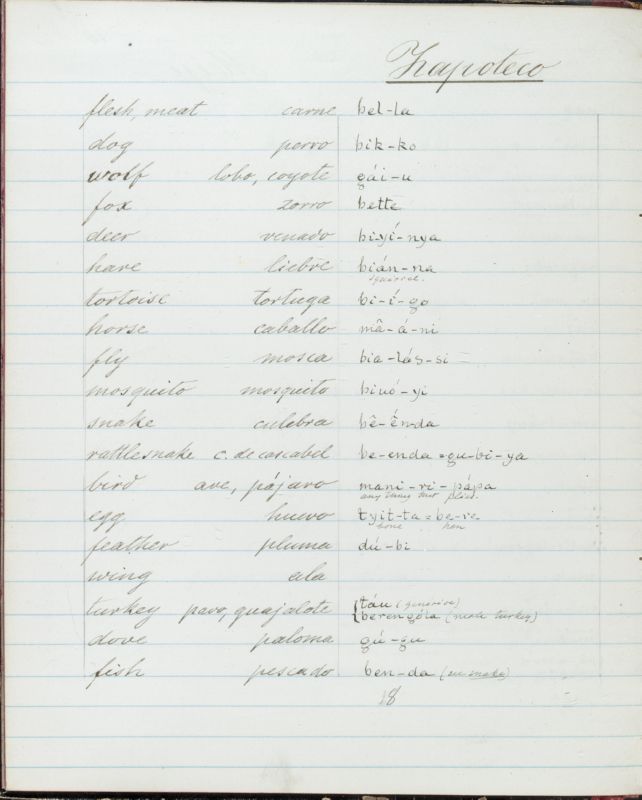 Zapoteco
flesh, meat carne bel-la
dog perro bik-ko
wolf lobo, coyote gái-u
fox zorro bette
deer venado bi-yí-nya
hare liebre bián-na
squirrel.
tortoise tortuga bi-í-go
horse caballo mâ-á-ni
fly mosca bia-lás-si
mosquito mosquito biuó-yi
snake culebra bê-én-da
rattlesnake c. de cascabel be-enda=gu-bi-ya
bird ave, pájaro mani-ri-pápa
any thing that flies.
egg huevo tyit-ta=be-re
bone hen
feather pluma dú-bi
wing ala
turkey pavo, guajalote táu (generic)
berengóla (male turkey)
dove paloma gú-gu
fish pescado ben-da (see snake)
18